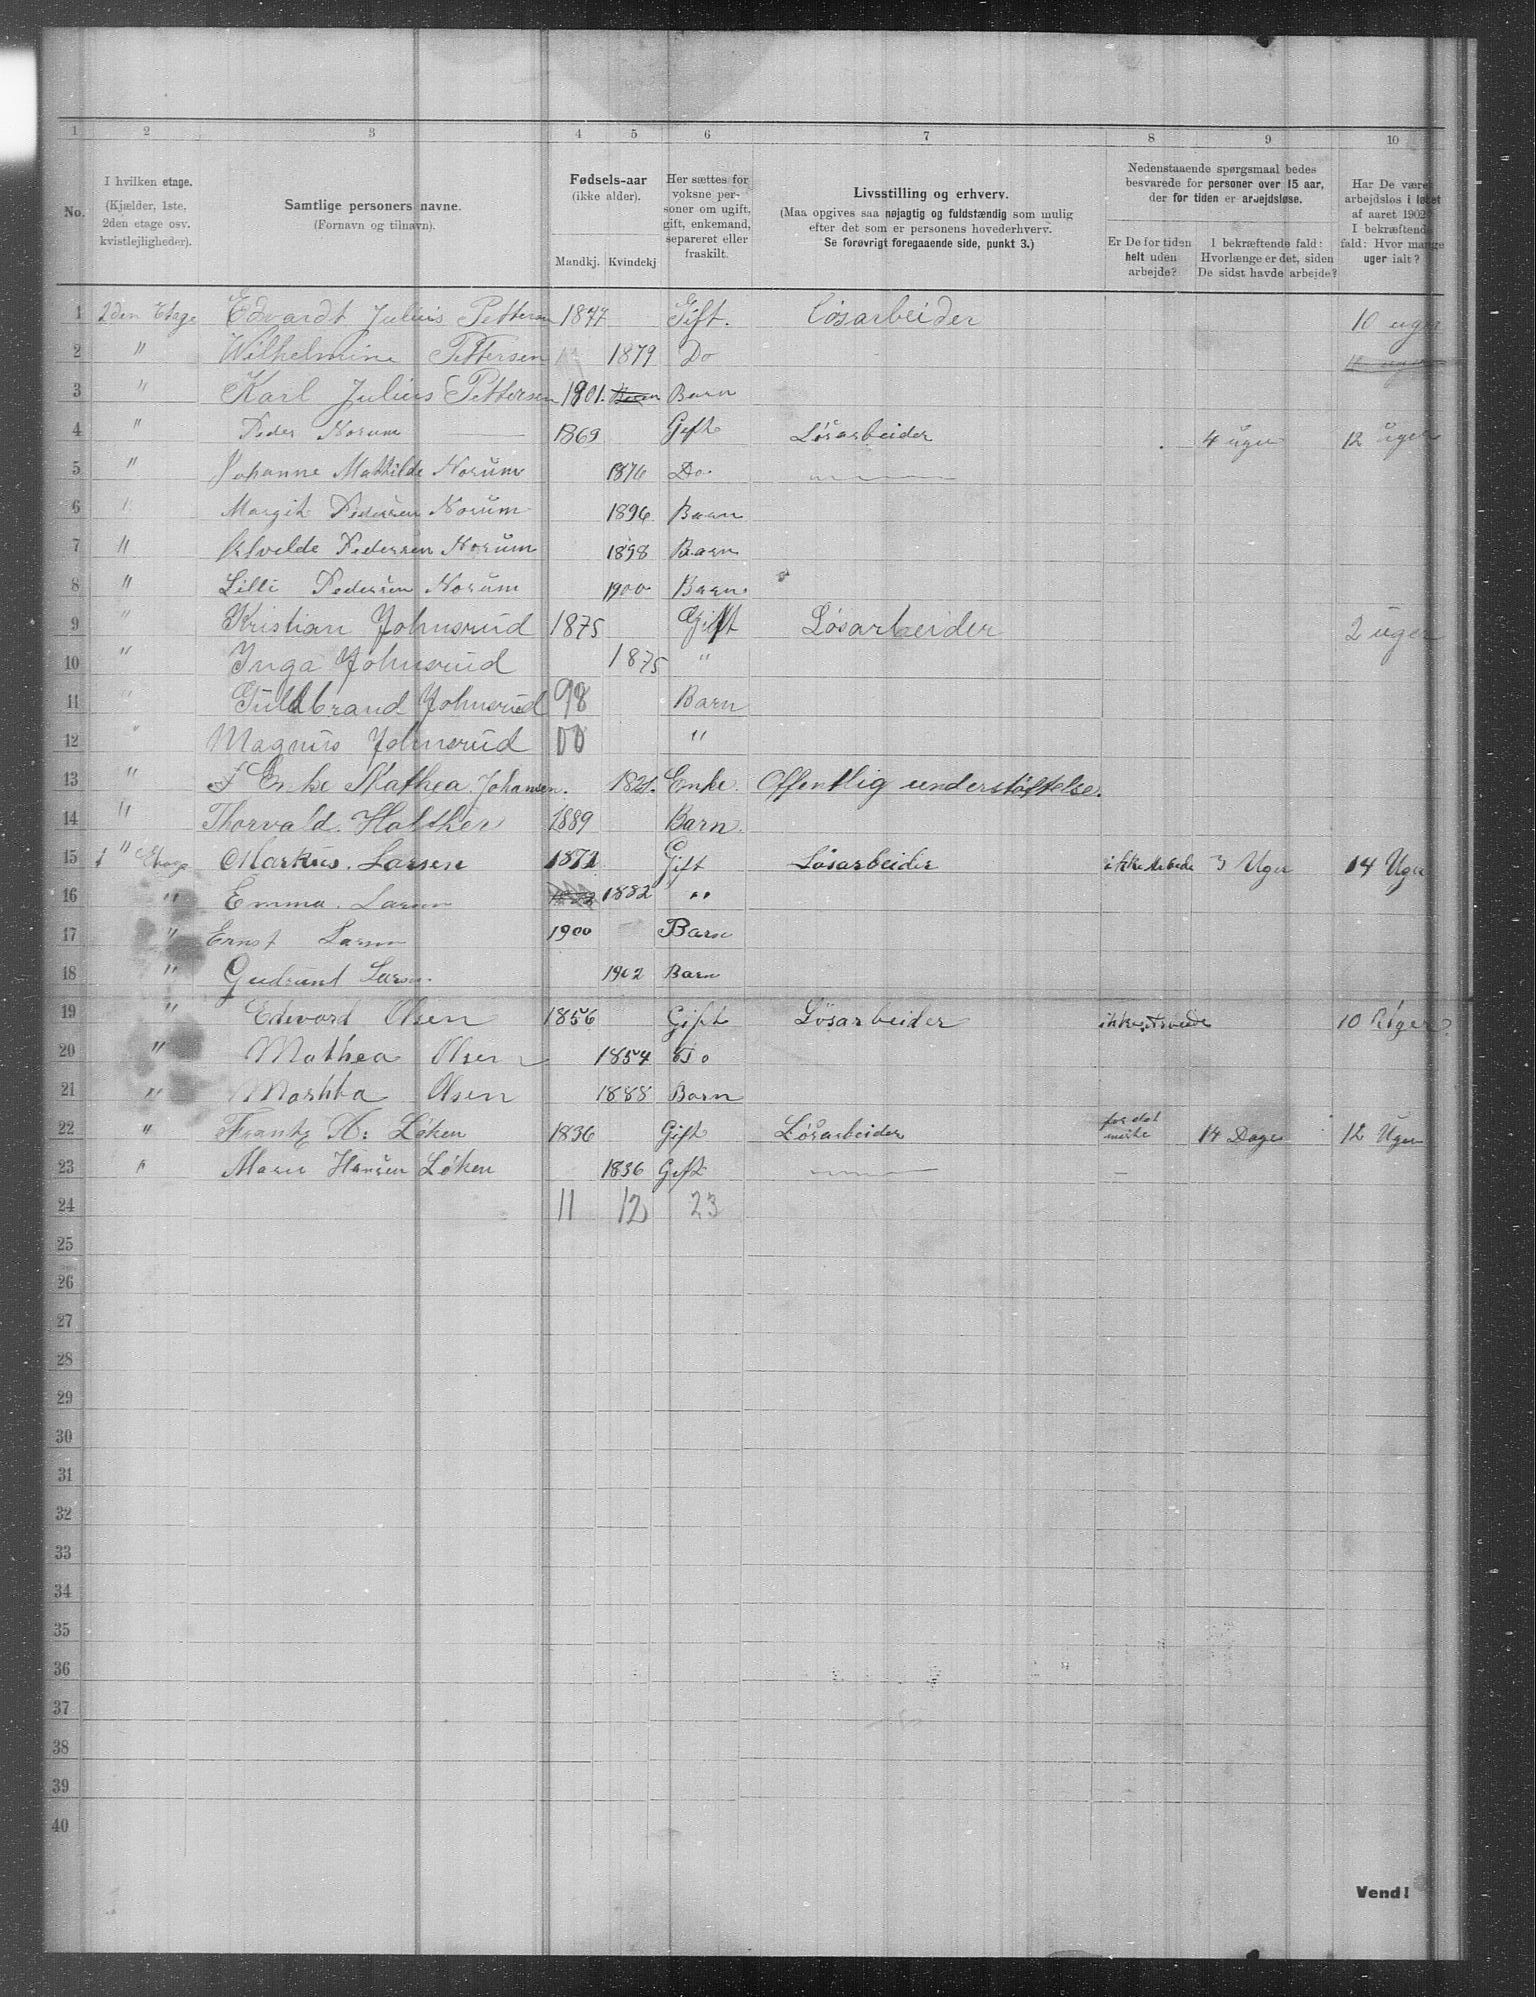 1 2 3 4 5 6 7 8 9 10
No.
I hvilken etage.
(Kjælder, 1ste,
2den etage osv.
kvistlejligheder).
Samtlige personers navne.
(Fornavn og tilnavn).
Fødsels-aar
(ikke alder).
Mandkj. Kvindekj
Her sættes for
voksne per-
soner om ugift,
gift, enkemand,
separeret eller
fraskilt.
Livsstilling og erhverv.
(Maa opgives saa nøjagtig og fuldstændig som mulig
efter det som er personens hovederhverv.
Se forøvrigt foregaaende side, punkt 3.)
Nedenstaaende spørgsmaal bedes
besvarede for personer over 15 aar,
der for tiden er arbejdsløse.
Er De for tiden
helt uden
arbejde?
I bekræftende fald:
Hvorlænge er det, siden
De sidst havde arbejde?
Har De været
arbejdsløs i løbet
af aaret 1902?
I bekræftende
fald: Hvor mange
uger ialt?
1 2den Etage Edvardt Julius Pettersen 1877 Gift. Løsarbeider 10 uger
2 " Wilhelmine Pettersen 1879 Do 10 uger
3 " Karl Julius Pettersen 1901. Barn Barn
4 " Peder Norum 1869 Gift Løsarbeider 4 uger 12 uger
5 " Johanne Mathilde Norum 1876 Do.
6 " Margit Pedersen Norum 1896 Barn
7 " Alvilde Pedersen Norum 1898 Barn
8 " Lilli Pedersen Norum 1900 Barn
9 " Kristian Johnsrud 1875 Gift Løsarbeider 2 uger
10 " Inga Johnsrud 1875 "
11 " Guldbrand Johnsrud 98 Barn
12 " Magnus Johnsrud 00 "
13 " f Enke Mathea Johansen. 1821. Enke. Offentlig understøttelse.
14 " Thorvald. Halthen 1889 Barn.
15 1 " Etage Markus. Larsen 1872 Gift Løsarbeider ikke Arbeide 3 Uger 14 Uger
16 " Emma. Larsen 1882 "
17 " Ernst Larsen 1900 Barn
18 " Gudrund Larsen. 1902 Barn
19 " Edevard Olsen 1856 Gift Løsarbeider ikke Arbeide 10 Uger.
20 " Mathea Olsen 1854 Do
21 " Marhta Olsen 1888 Barn
22 " Frantz A: Løken 1836 Gift Løsarbeider for det meste 14 Dage 12 Uger
23 " Marie Hansen Løken 1836 Gift —
24 11 12 23
25
26
27
28
29
30
31
32
33
34
35
36
37
38
39
40
Vend!